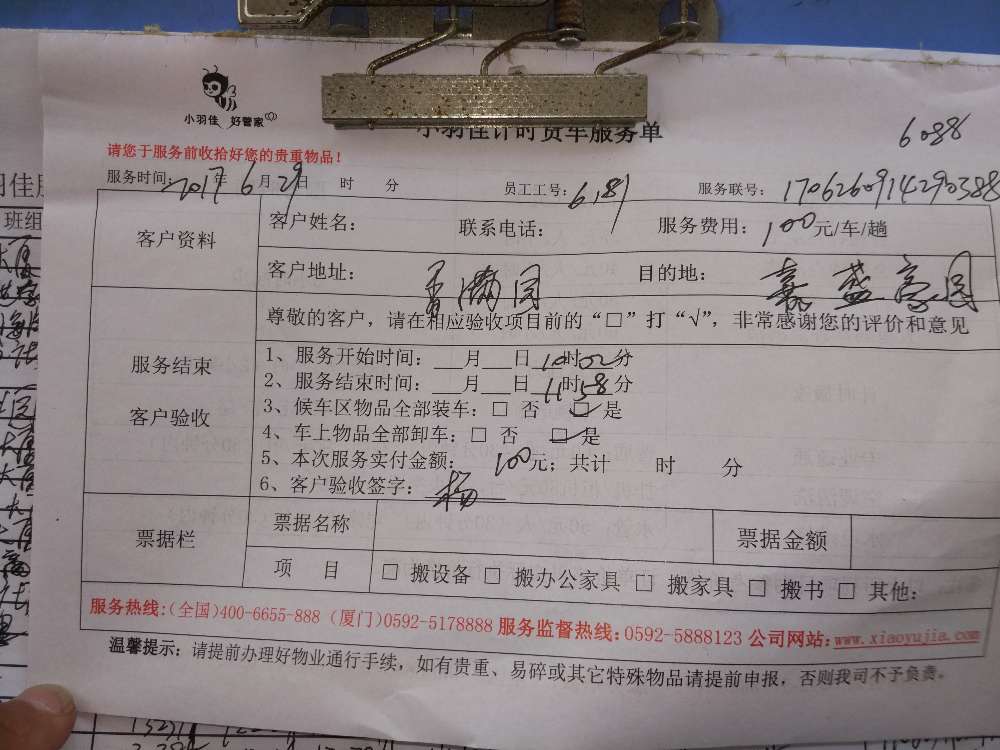 小羽佳 好管家
小羽佳计时货车服务单
6088
请您于服务前收拾好您的贵重物品！
服务时间：2017年6月29日 时 分 员工工号：6181 服务联号：1706260914290388
客户资料
客户姓名： 联系电话： 服务费用：100元/车/趟
客户地址： 目的地：嘉盛豪园
服务结束
客户验收
尊敬的客户，请在相应验收项目前的“□”打“√”，非常感谢您的评价和意见
1、服务开始时间：___月___日10时02分
2、服务结束时间：___月___日11时58分
3、候车区物品全部装车：□ 否 ☑是
4、车上物品全部卸车：□ 否 ☑是
5、本次服务实付金额：100元；共计 时 分
6、客户验收签字：杨
票据栏
票据名称 票据金额
项 目 □ 搬设备 □ 搬办公家具 □ 搬家具 □ 搬书 □ 其他：
服务热线:(全国)400-6655-888 (厦门)0592-5178888 服务监督热线:0592-5888123 公司网站:www.xiaoyujia.com
温馨提示：请提前办理好物业通行手续，如有贵重、易碎或其它特殊物品请提前申报，否则我司不予负责。
班组